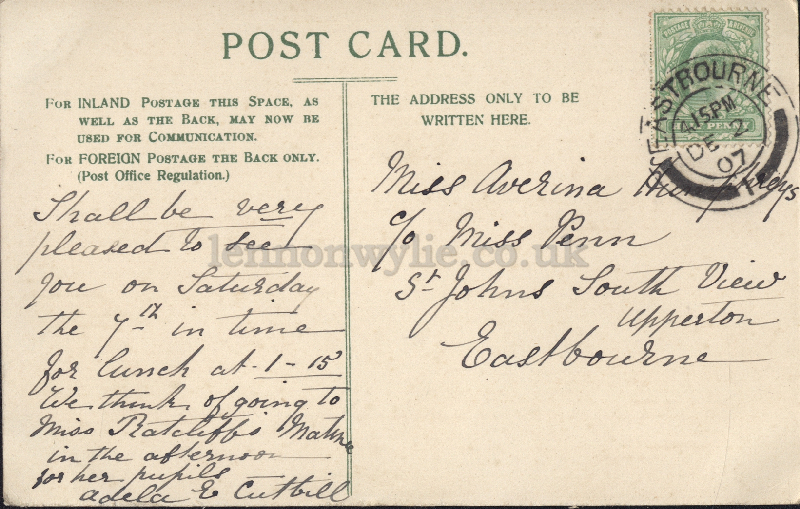 POST CARD.
FOR INLAND POSTAGE THIS SPACE, AS
WELL AS THE BACK, MAY NOW BE
USED FOR COMMUNICATION.
FOR FOREIGN POSTAGE THE BACK ONLY.
(Post Office Regulation.)
THE ADDRESS ONLY TO BE
WRITTEN HERE.
POSTAGE & REVENUE
PENNY
EASTBOURNE
4.15PM
DE 2
07
Shall be very
pleased to see
you on Saturday
the 7th in time
for lunch at 1-15
We think of going to
Miss Ratcliffs Matinee
in the afternoon
for her pupils
Adela E Cutbill
Miss Averina Humphreys
c/o Miss Penn
St Johns South View
Upperton
Eastbourne
lennonwylie.co.uk